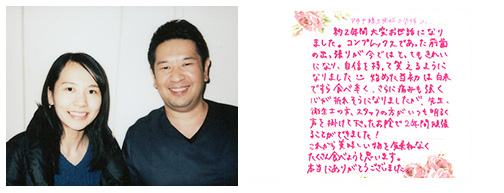 約2年間大変お世話になり
ました。コンプレックスであった前歯
の出っ張りが今ではとってもきれい
になり、自信を持って笑えるように
なりました 始めた当初は白米
ですら食べ辛く、さらに痛みも強く
心が折れそうになりましたが、先生、
衛生士の方、スタッフの方がいつも明るく
声を掛けて下さったお陰で2年間頑張
ることができました！
これからも美味しい物を気兼ねなく
たくさん食べようと思います。
本当にありがとうございました。